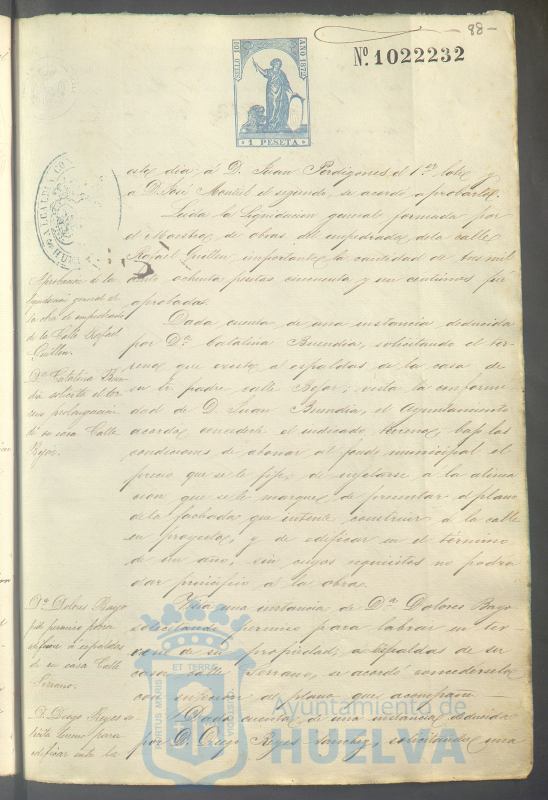 88-
Nº. 1022232
SELLO 10º
AÑO 1872
1 PESETA
ALCALDIA CON
HUELVA
este dia á D. Juan Perdigones el 1er lote y
a D. José Montiel el segundo, se acordó aprobarlo.
Leida la liquidacion general formada por
el Maestro de obras del empedrado de la calle
Rafael Guillen, importante la cantidad de tres mil
ochenta pesetas cincuenta y un centimos fué
aprobada.
Aprobacion de la
liquidacion general de
la obra de empedrado
de la Calle Rafael
Guillen.
Dada cuenta de una instancia deducida
por Dª Catalina Buendia, solicitando el ter-
reno que existe á espaldas de la casa de
su padre calle Bejar; vista la conformi-
dad de D. Juan Buendia, el Ayuntamiento
acordó concederle el indicado terreno, bajo las
condiciones de abonar al fondo municipal el
precio que se le fije, de sujetarse a la alinea
cion que se le marque, de presentar el plano
de la fachada que intente construir á la calle
en proyecto, y de edificar en el término
de un año, sin cuyos requisitos no podrá
dar principio a la obra.
Dª Catalina Buen-
dia solicita el ter-
reno prolongacion
de su casa Calle
Bejar.
Vista una instancia de Dª Dolores Bayo
solicitando permiso para labrar un ter-
reno de su propiedad, a espaldas de su
casa calle Serrano, se acordó concederselo
con sujecion al plano que acompaña.
Dª Dolores Bayo
pide permiso para
edificar á espaldas
de su casa Calle
Serrano.
Dada cuenta de una instancia deducida
por D. Diego Reyes Sanchez, solicitando una
D. Diego Reyes so-
licita terreno para
edificar entre la
ET TERRÆ
PORTUS MARIS
CUSTODIA
Ayuntamiento de
HUELVA